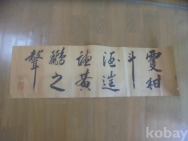 雙柑
斗
酒遙
聽黃
鸝之
聲
kobay